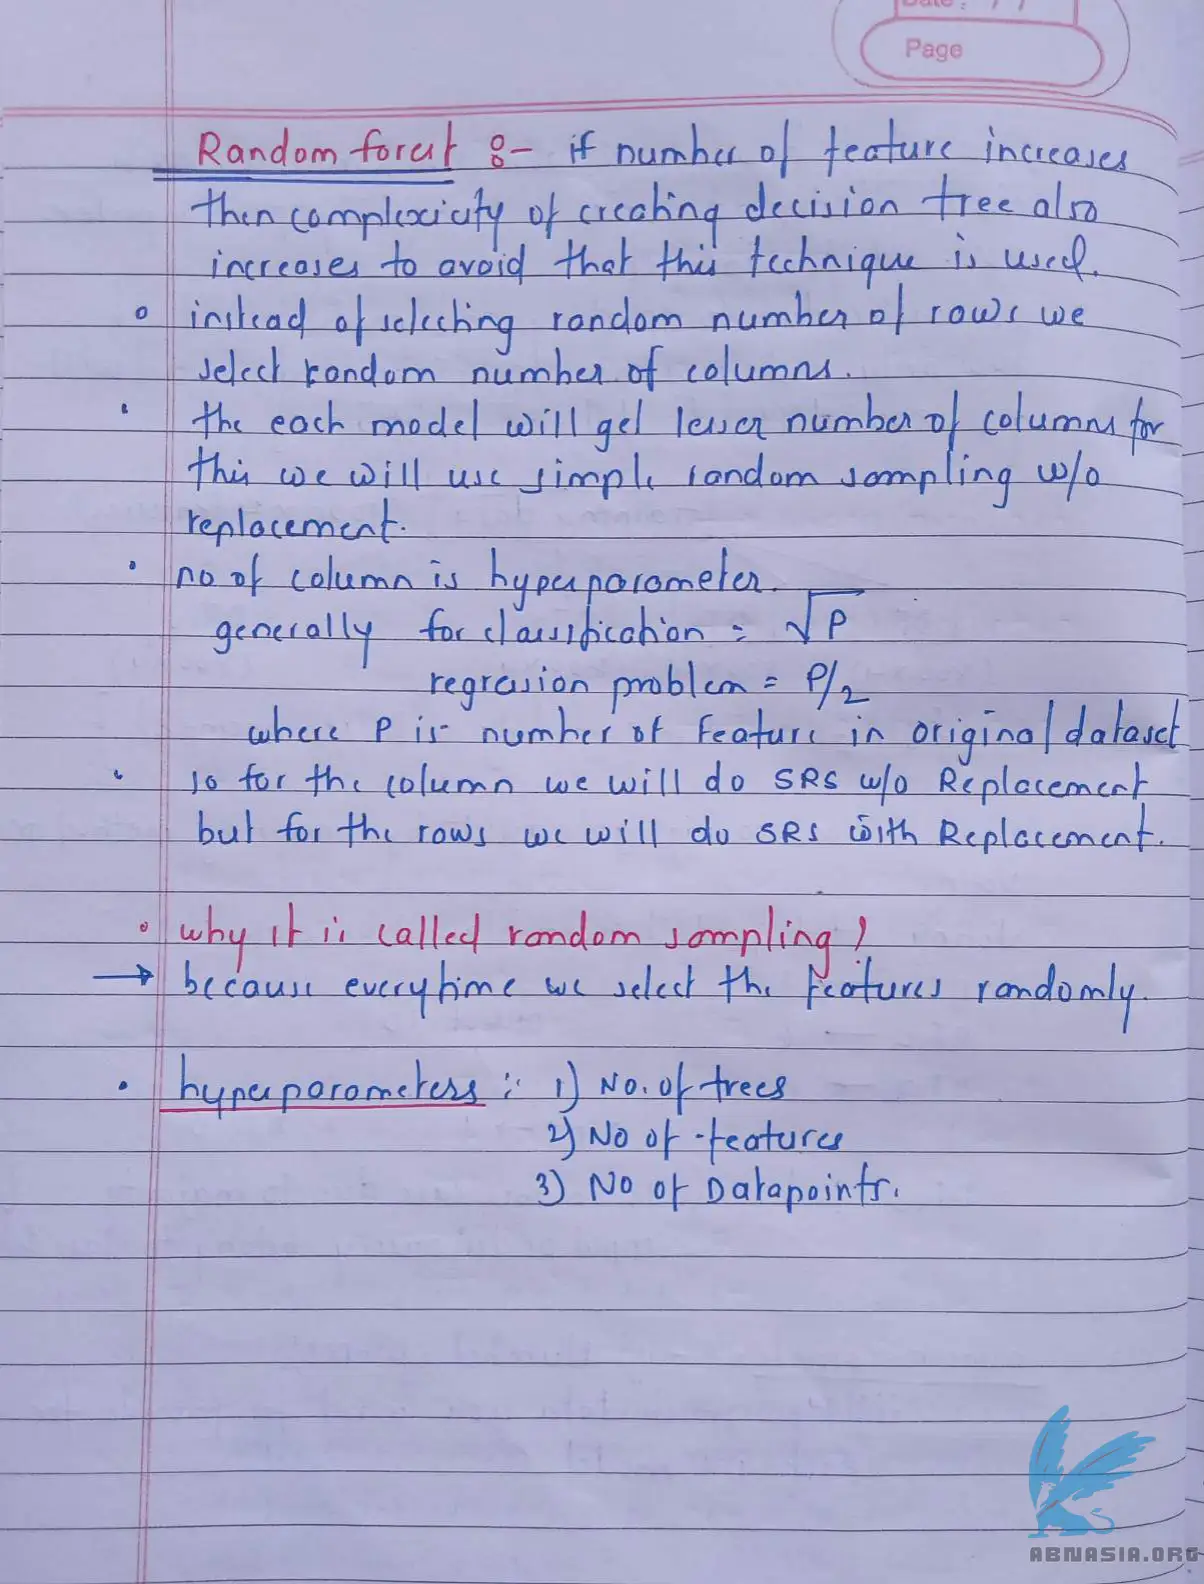 Date : / /
Page
Random forest :- if number of feature increases
then complexicity of creating decision tree also
increases to avoid that this technique is used.
instead of selecting random number of rows we
select random number of columns.
the each model will get lesser number of columns for
this we will use simple random sampling w/o
replacement.
no of column is hyperparameter.
generally for classification = √P
regression problem = P/2
where P is number of feature in original dataset
so for the column we will do SRS w/o Replacement
but for the rows we will do SRS with Replacement.
why it is called random sampling?
→ because everytime we select the features randomly.
hyperparameters : 1) No. of trees
2) No of features
3) No of Datapoints.
ABNASIA.ORG